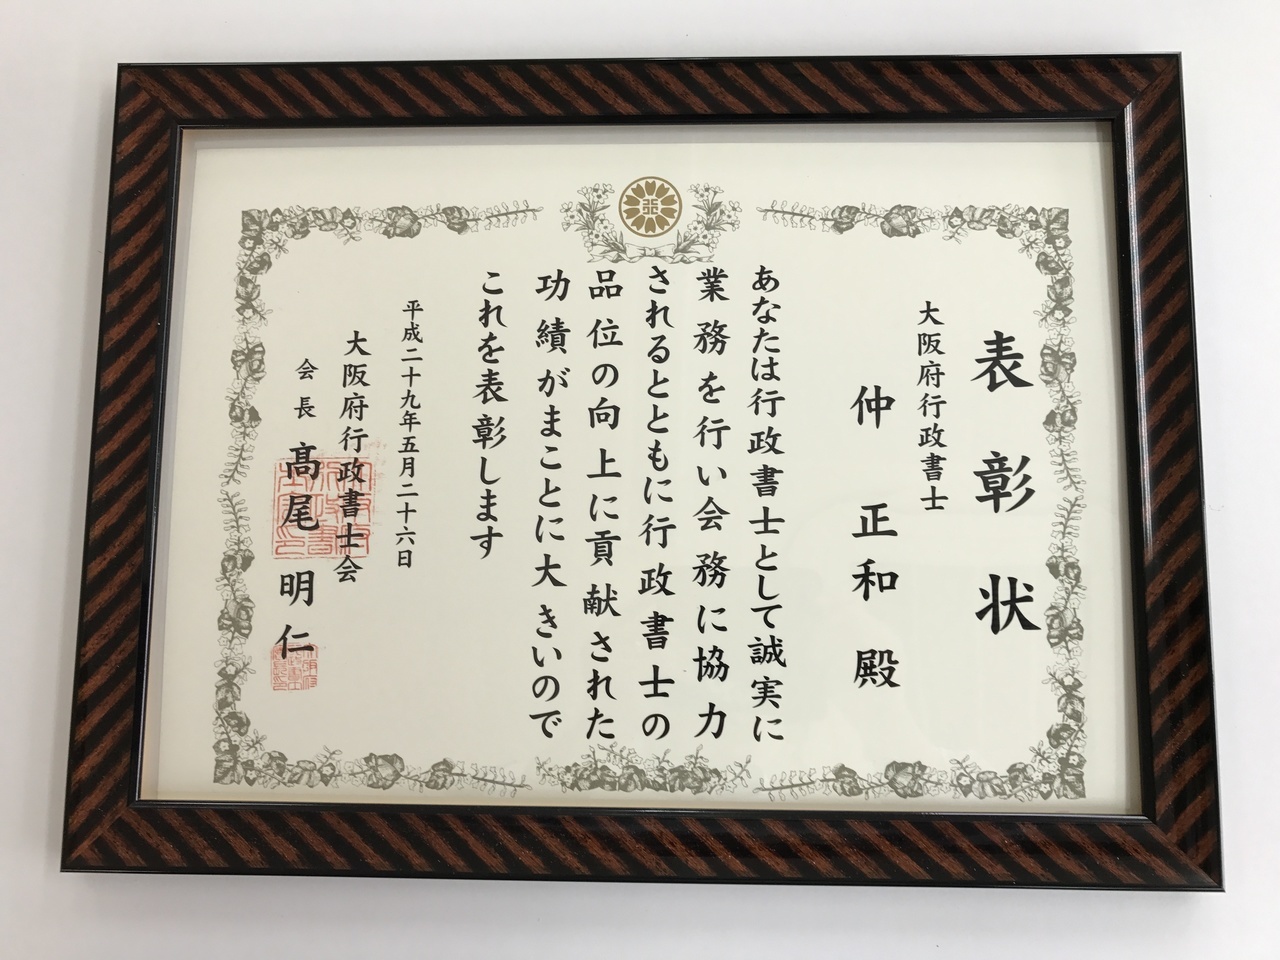 表彰状
大阪府行政書士
仲 正和 殿
あなたは行政書士として誠実に
業務を行い会務に協力
されるとともに行政書士の
品位の向上に貢献された
功績がまことに大きいので
これを表彰します
平成二十九年五月二十六日
大阪府行政書士会
会長 髙尾 明仁